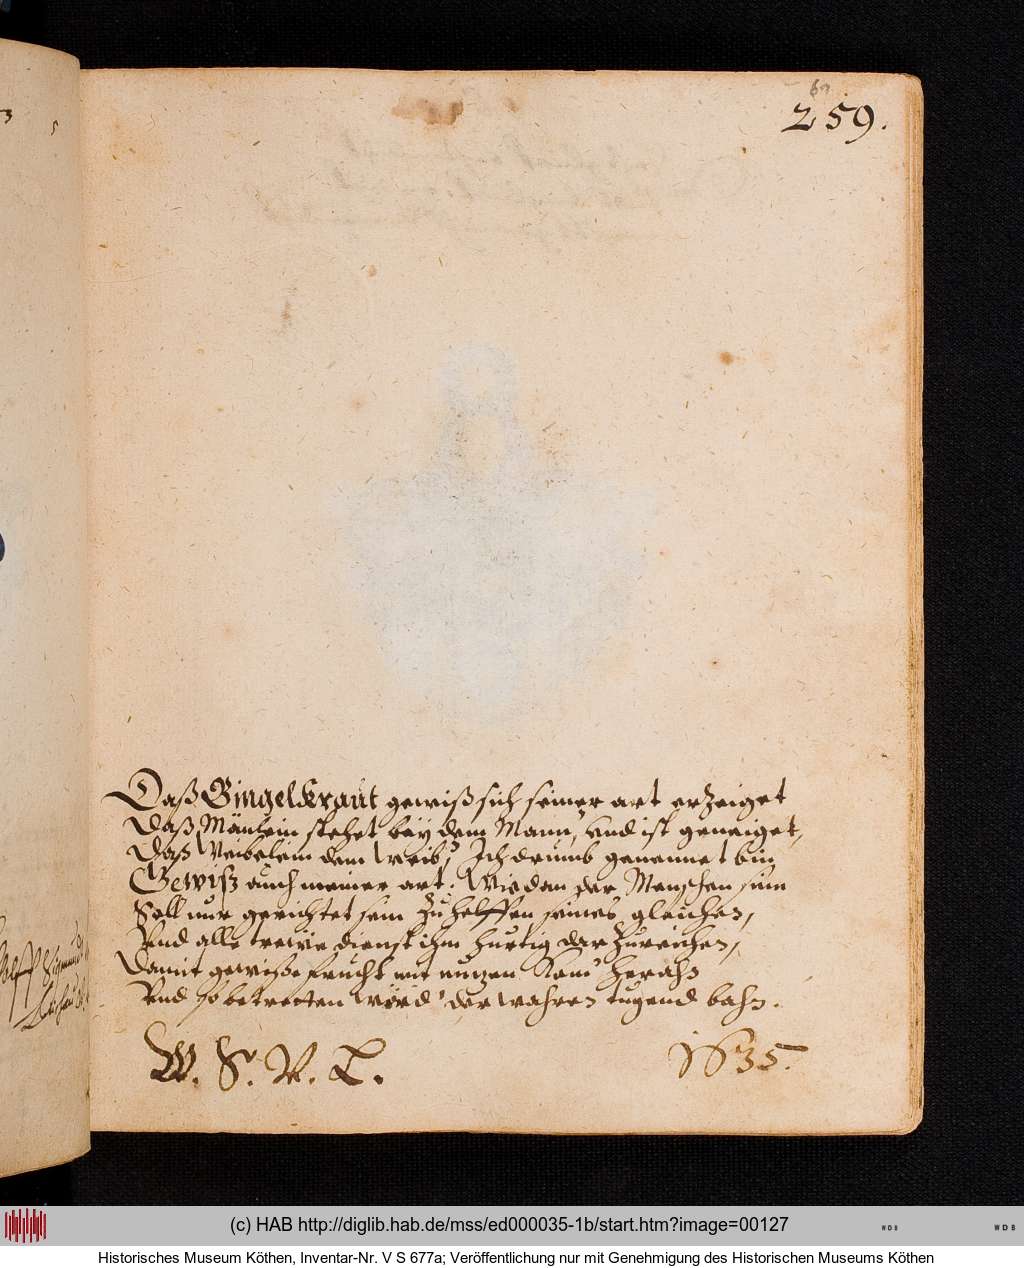 259.
Daß Bingelkraut gewiß sich seiner art erZeiget
Daß Mänlein stehet beÿ dem Mann, und ist geneiget,
Daß Weibelein dem Weib, Ich drumb genennet bin
Gewiß auch meiner art. Wie dan der Menschen sinn
Soll nur gerichtet sein Zu helffen seines gleichen,
Und alle trewe dienst ihm hurtig dar Zureichen,
Damit gewiße frucht mit nuzen kom' herahn
Und so betretten werd' der wahren tugend bahn.
W. S. V. L. 1635.
(c) HAB http://diglib.hab.de/mss/ed000035-1b/start.htm?image=00127
WDB
WDB
Historisches Museum Köthen, Inventar-Nr. V S 677a; Veröffentlichung nur mit Genehmigung des Historischen Museums Köthen